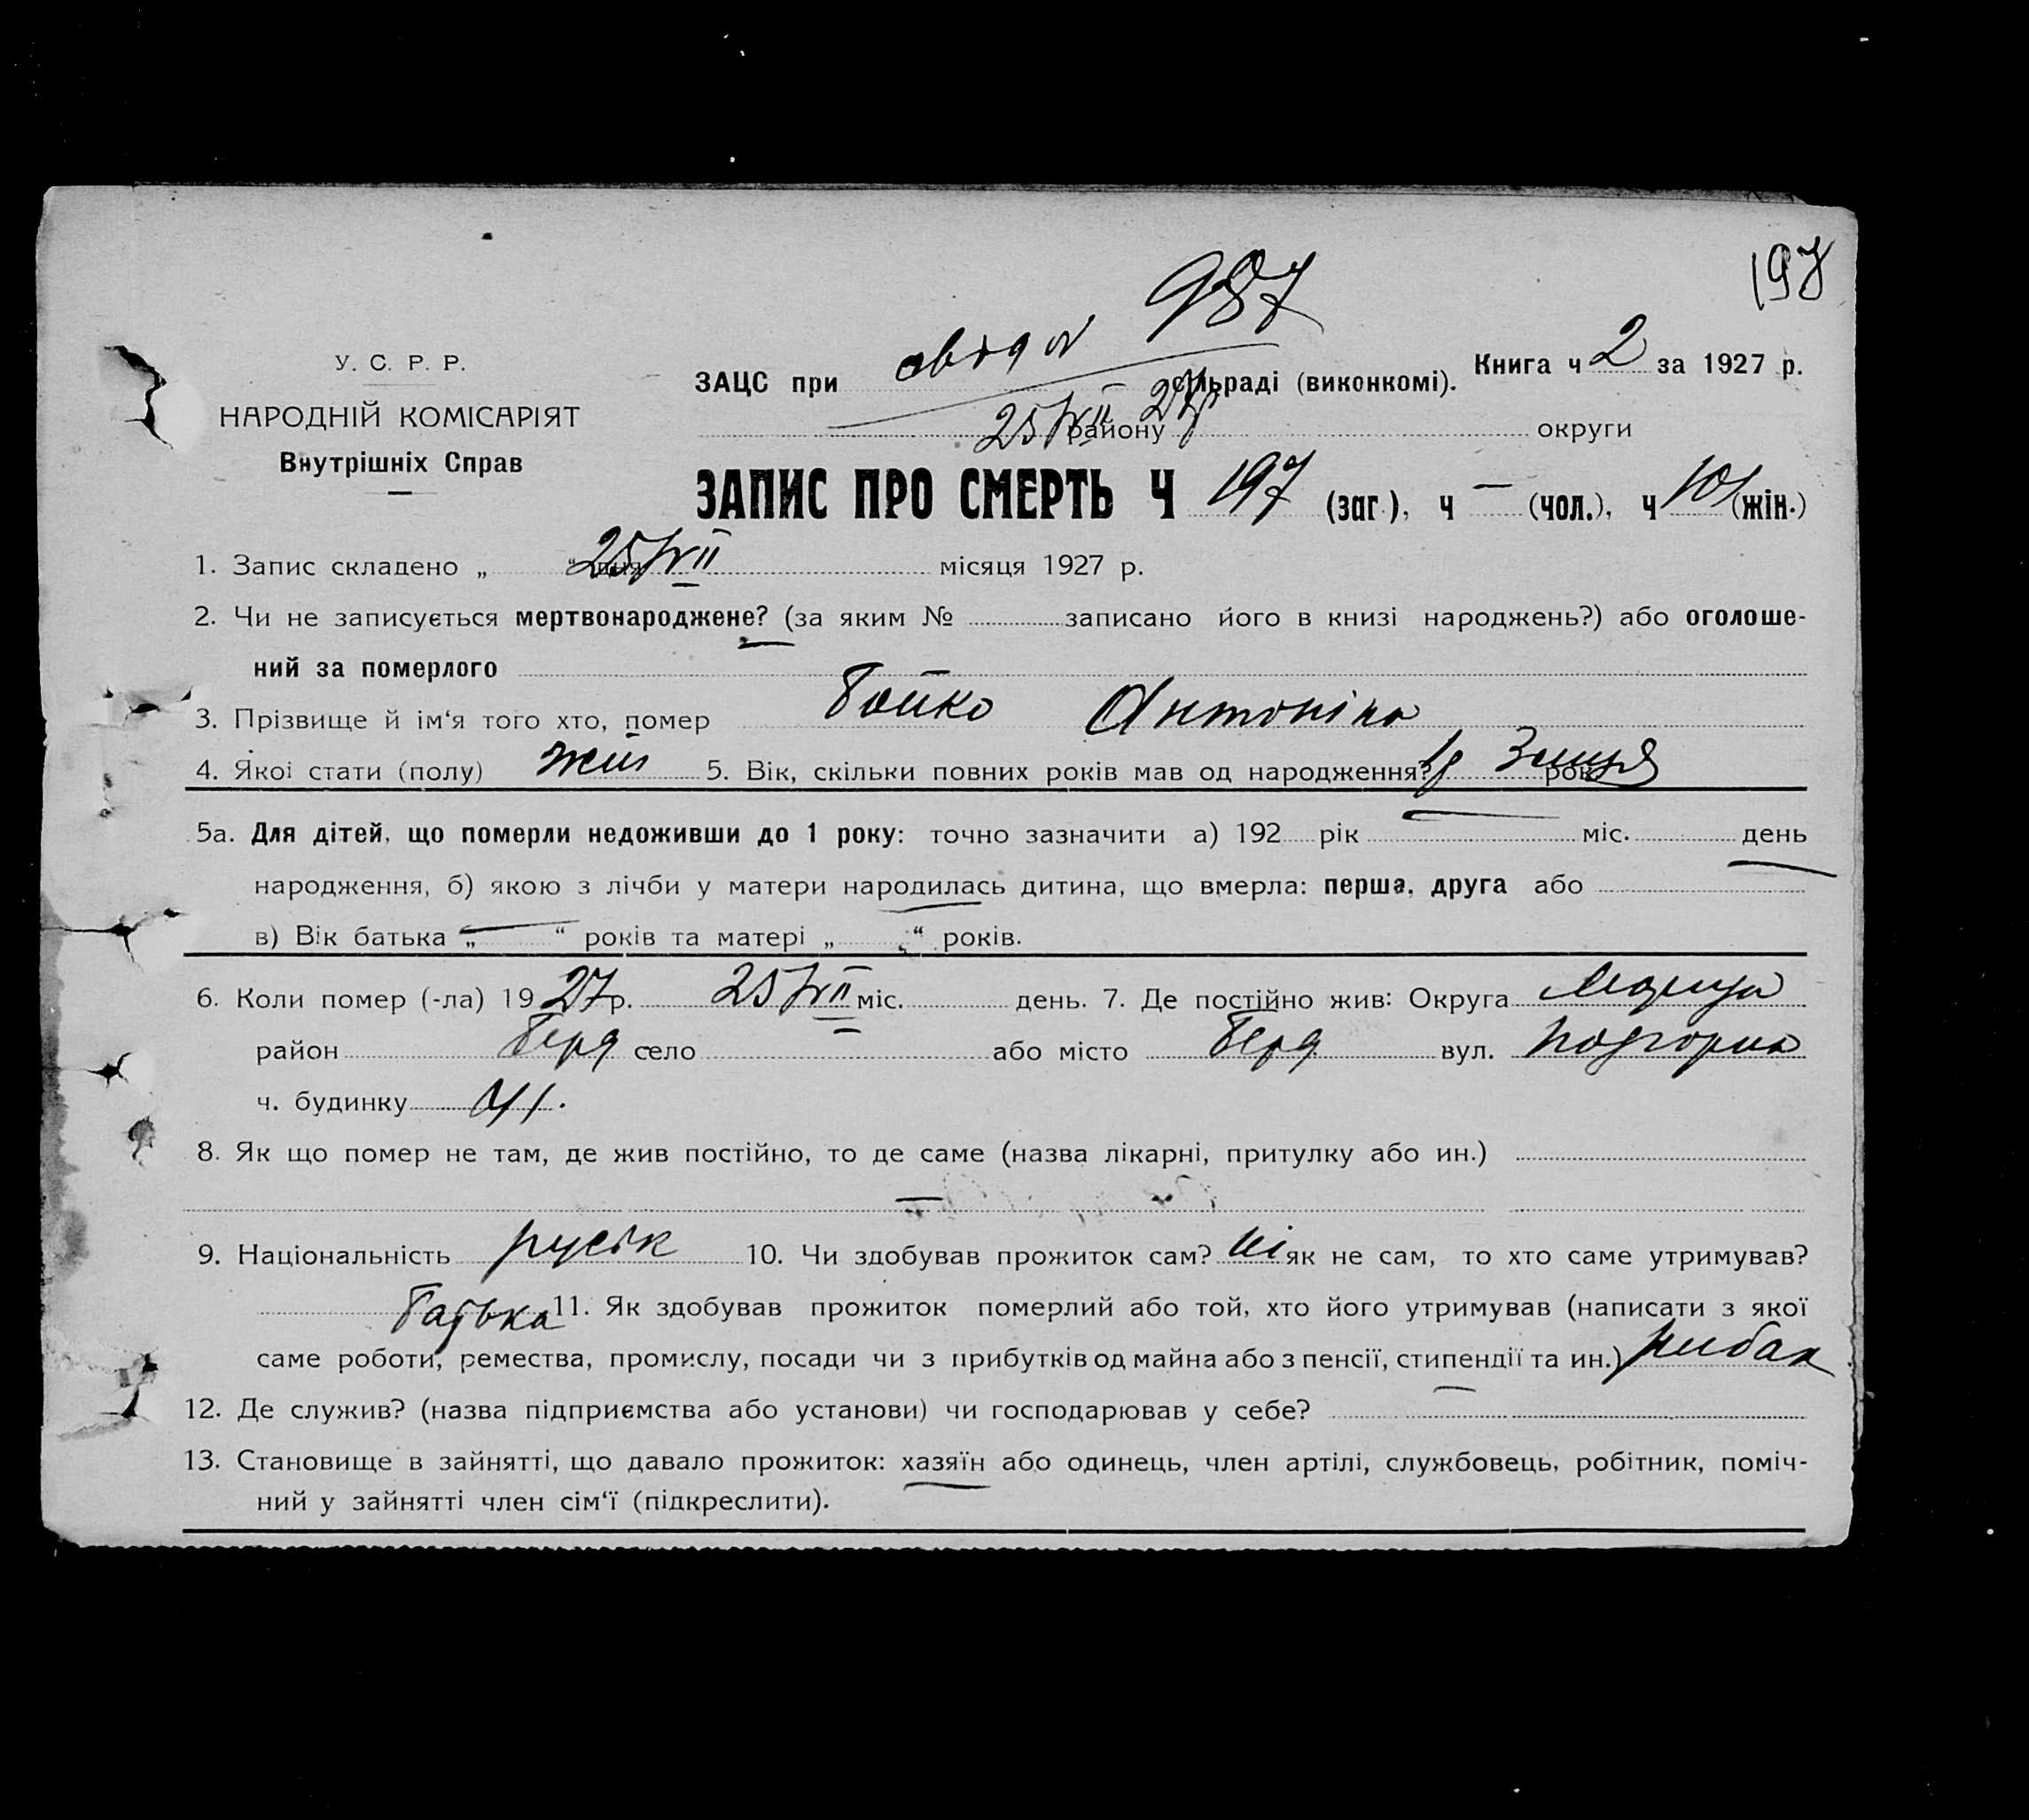 197
987
У. С. Р. Р.
НАРОДНІЙ КОМІСАРІЯТ
Внутрішніх Справ
ЗАЦС при сільраді (виконкомі). Книга ч 2 за 1927 р.
25/VII 27р району округи
ЗАПИС ПРО СМЕРТЬ Ч 197 (заг.), ч — (чол.), ч 101 (жін.)
1. Запис складено „ 25/VII “ дня місяця 1927 р.
2. Чи не записується мертвонароджене? (за яким № записано його в книзі народжень?) або оголоше-
ний за померлого
3. Прізвище й ім‘я того хто, помер Бойко Антоніна
4. Якоі стати (полу) жін 5. Вік, скільки повних років мав од народження? 1р 3 місяця рок
5а. Для дітей, що померли недоживши до 1 року: точно зазначити а) 192 рік міс. день
народження, б) якою з лічби у матери народилась дитина, що вмерла: перша, друга або
в) Вік батька „ — “ років та матері „ “ років.
6. Коли помер (-ла) 1927 р. 25/VII міс. день. 7. Де постійно жив: Округа Маріуп
район Берд село або місто Берд вул. Подгорна
ч. будинку 41.
8. Як що помер не там, де жив постійно, то де саме (назва лікарні, притулку або ин.)
—
9. Національність руськ 10. Чи здобував прожиток сам? ні як не сам, то хто саме утримував?
батька 11. Як здобував прожиток померлий або той, хто його утримував (написати з якої
саме роботи, ремества, промислу, посади чи з прибутків од майна або з пенсії, стипендії та ин.) рибак
12. Де служив? (назва підприємства або установи) чи господарював у себе?
13. Становище в зайнятті, що давало прожиток: хазяїн або одинець, член артілі, службовець, робітник, поміч-
ний у зайнятті член сім‘ї (підкреслити).